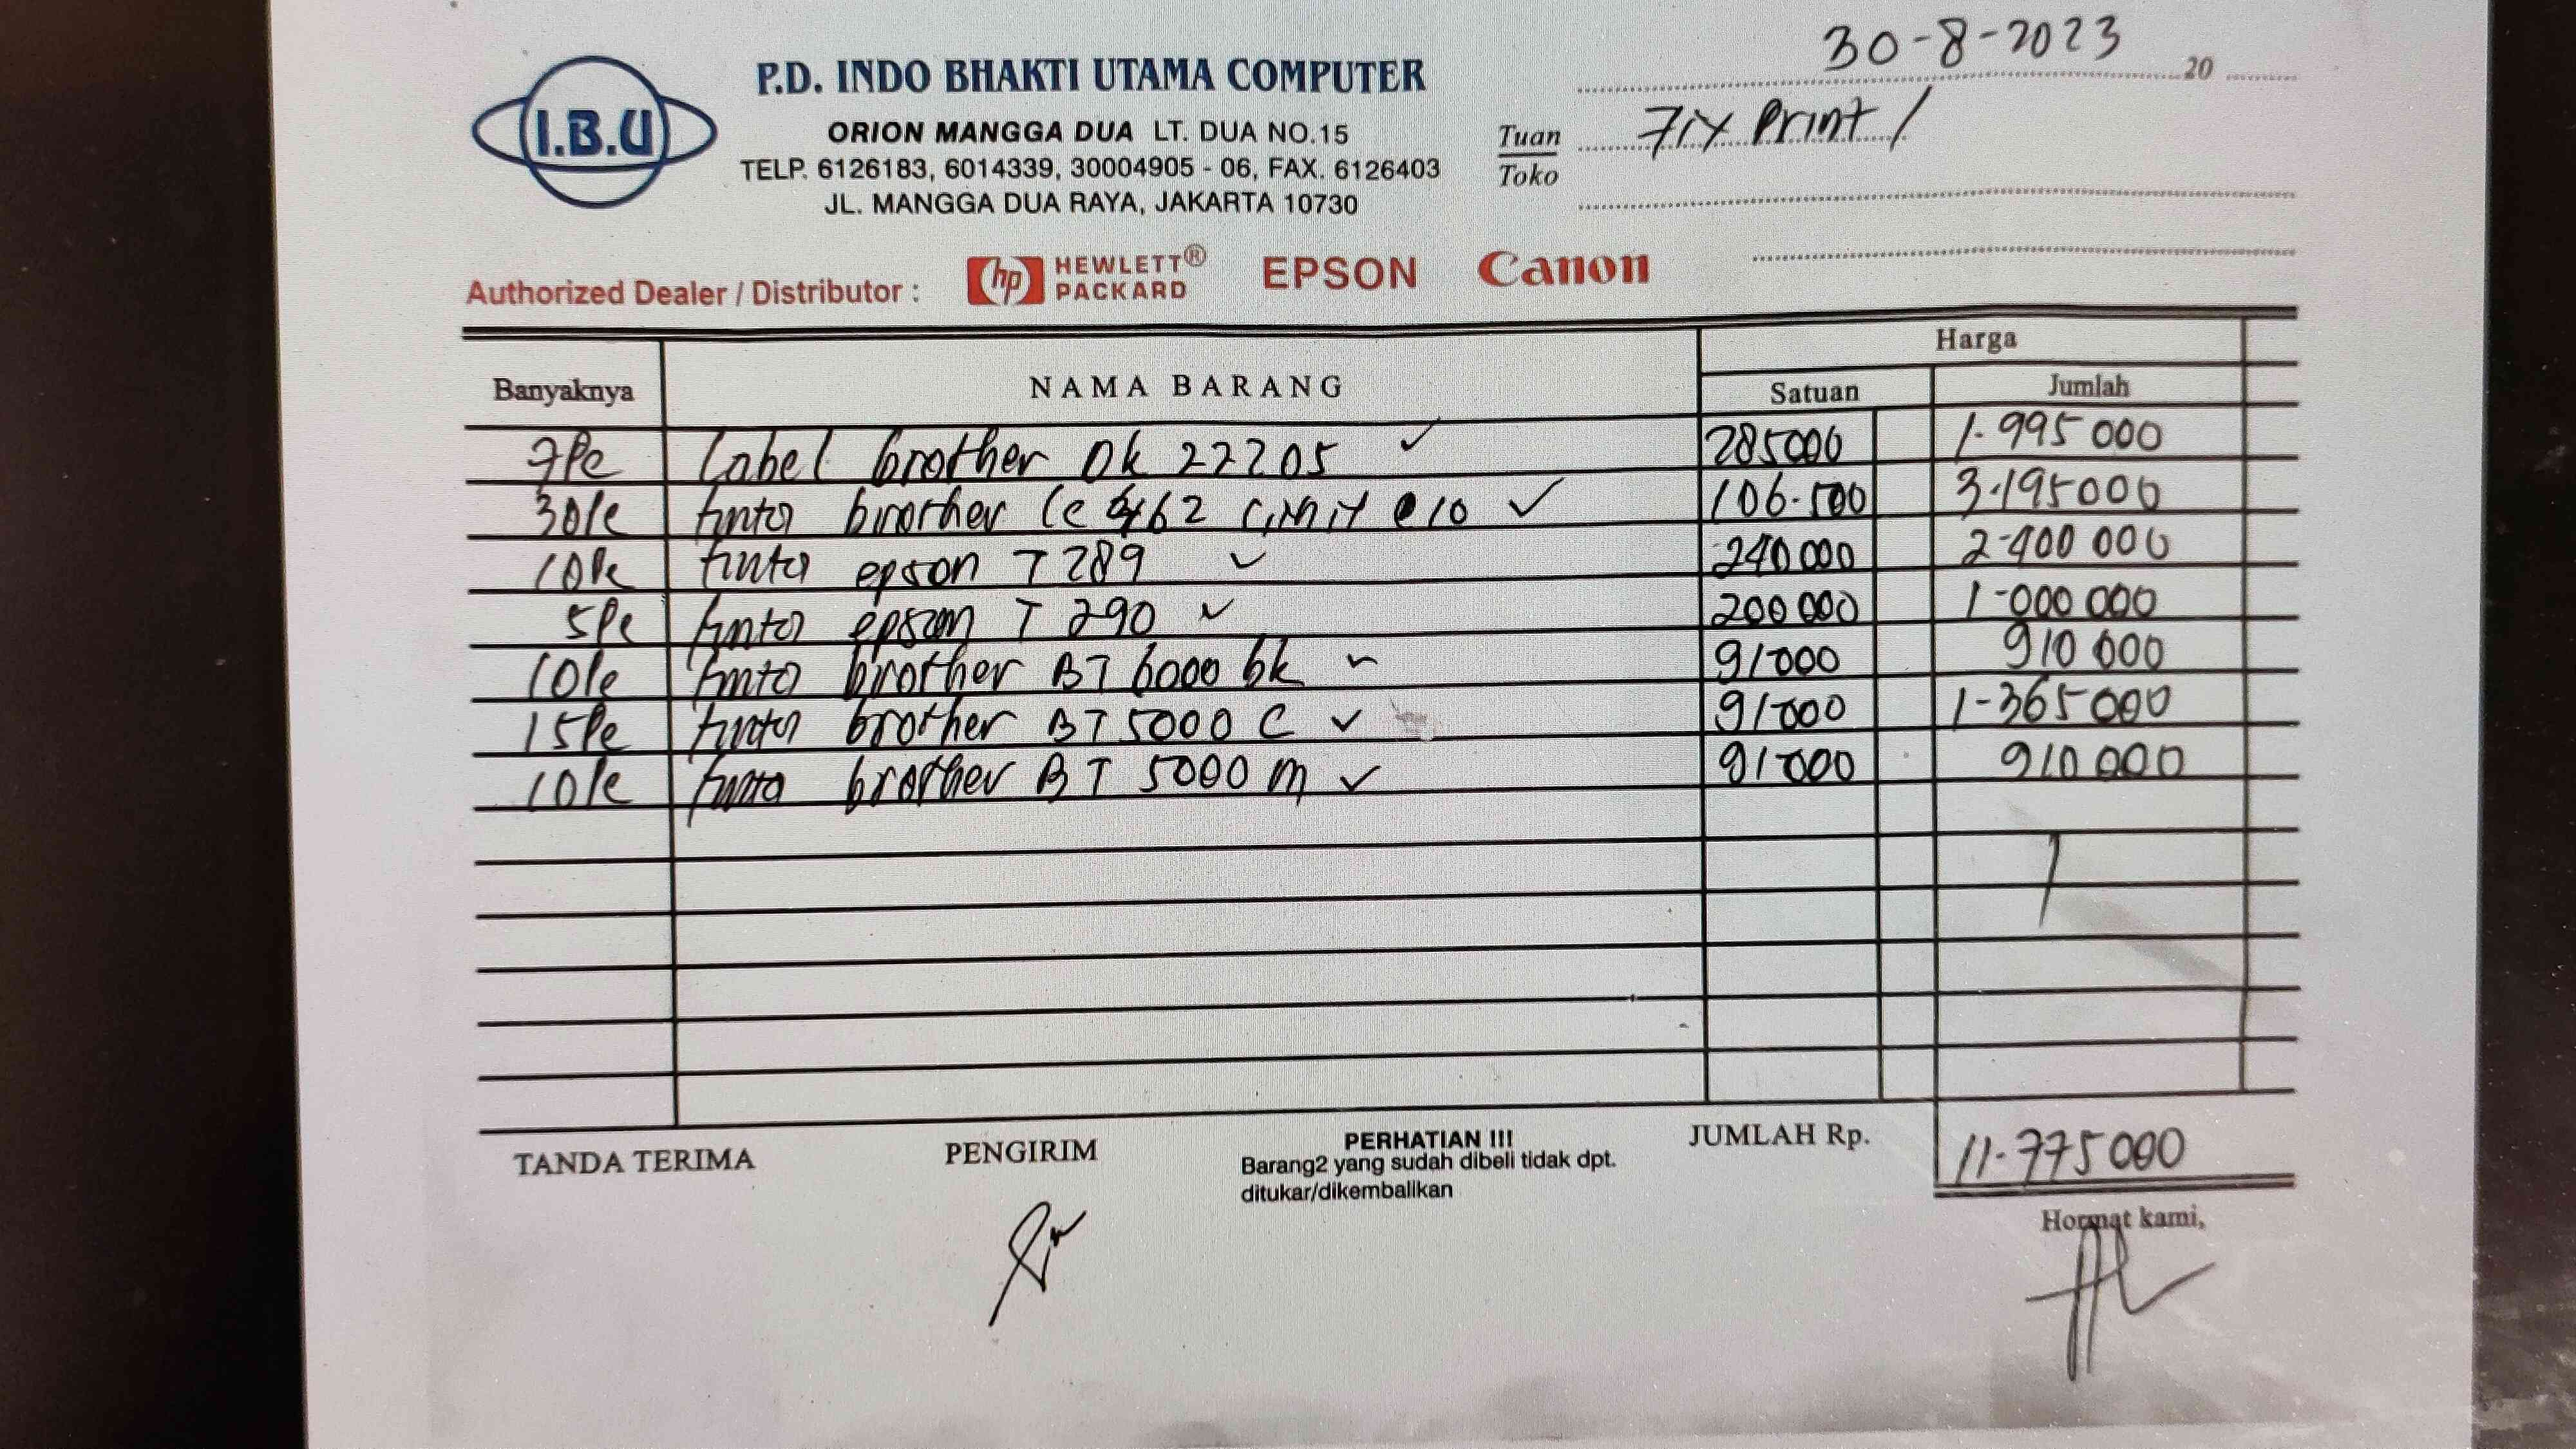 30-8-2023
20
P.D. INDO BHAKTI UTAMA COMPUTER
I.B.U
ORION MANGGA DUA LT. DUA NO.15
TELP. 6126183, 6014339, 30004905 - 06, FAX. 6126403
JL. MANGGA DUA RAYA, JAKARTA 10730
Tuan
Toko
Print /
Authorized Dealer / Distributor : hp HEWLETT® PACKARD EPSON Canon
Banyaknya NAMA BARANG Harga
Satuan Jumlah
7Pc Label brother DK 22205 ✓ 285000 1.995000
30Pc tinta brother Lc 10 ✓ 106.500 3.195000
10Pc tinta epson T 289 ✓ 240000 2-400 000
5Pc tinta epson T 290 ✓ 200 000 1-000 000
10Pc tinta brother BT 6000 bk ✓ 91000 910 000
15Pc tinta brother BT 5000 C ✓ 91000 1-365000
10Pc tinta brother BT 5000 m ✓ 91000 910 000
TANDA TERIMA PENGIRIM
PERHATIAN !!!
Barang2 yang sudah dibeli tidak dpt.
ditukar/dikembalikan
JUMLAH Rp. 11.775000
Hormat kami,